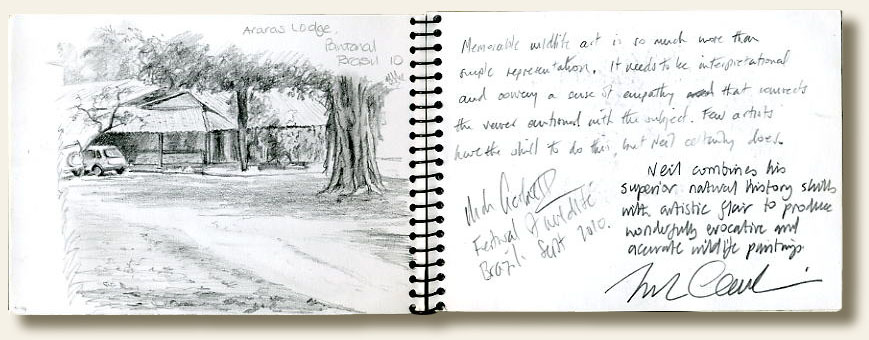 Araras Lodge,
Pantanal
Brazil 10
Memorable wildlife art is so much more than
simple representation. It needs to be interpretational
and convey a sense of empathy that connects
the viewer emotional with the subject. Few artists
have the skill to do this, but Neil certainly does.
Festival of wildlife
Brazil Sept 2010.
Neil combines his
superior natural history skills
with artistic flair to produce
wonderfully evocative and
accurate wildlife paintings